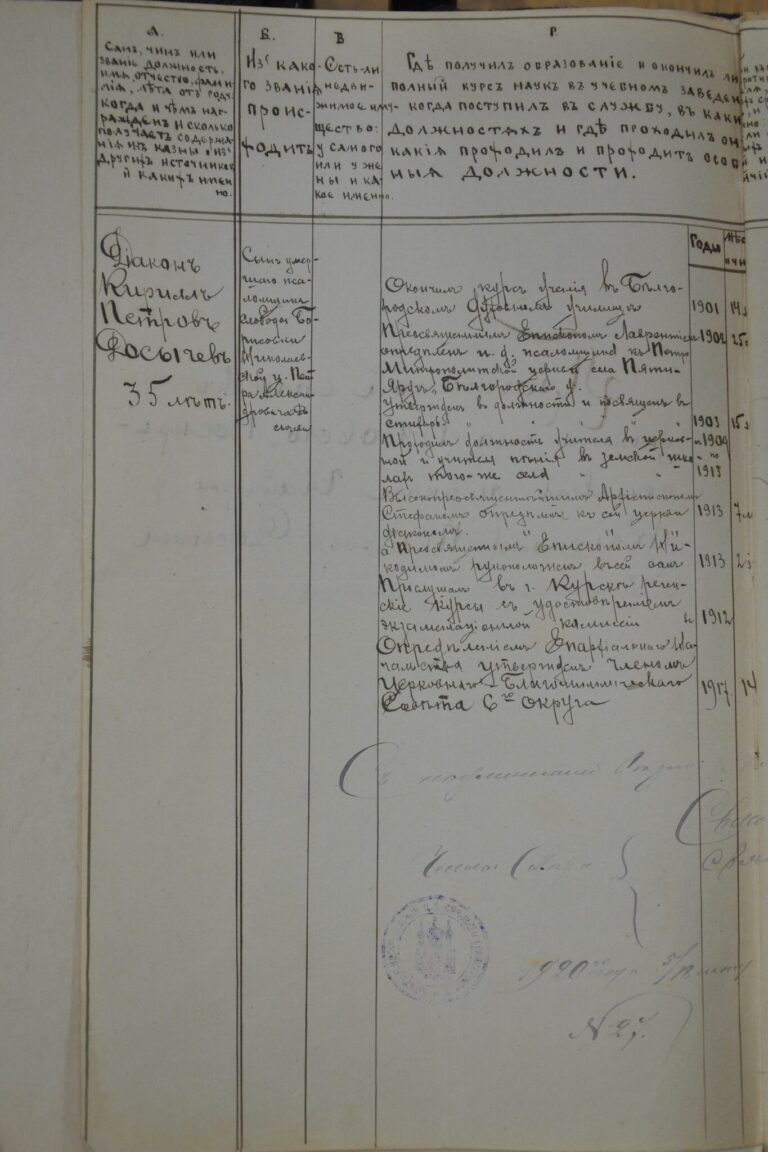 А.
Санъ, чинъ или
званіе должность,
имя, отчество, фами-
лія, лѣта отъ роду
когда и чѣмъ наг-
ражденъ и сколько
получаетъ содержа-
нія изъ казны и изъ
другихъ источниковъ
и какихъ имен-
но.
Б.
Изъ како-
го званія
проис-
ходитъ
В
Есть-ли
недви-
жимое иму-
щество:
у самого
или у же-
ны и ка-
кое именно.
Г.
Гдѣ получилъ образованіе и окончилъ ли
полный курсъ наукъ въ учебномъ заведен
когда поступилъ въ службу, въ каки
должностяхъ и гдѣ проходилъ он
какія проходилъ и проходитъ особ
ныя должности.
Годы
Мѣс
Діаконъ
Кириллъ
Петровъ
Косычевъ
35 лѣтъ.
Сынъ умер-
шаго пса-
ломщика
слободы Бо-
рисовки
Николаев-
ской ц. Пет
ра Алексан
дровича Ко
сычева
Окончилъ курсъ ученія въ Бѣлго-
родскомъ духовномъ училищѣ 1901 14
Преосвященнымъ Епископомъ Лаврентіемъ 1902 25
опредѣленъ и. д. псаломщика къ Петро
Митрополитской церкви села Пяти-
Яругъ, Бѣлгородскаго у.
Утвержденъ въ должности и посвященъ въ
стихарь. 1903 15
Проходилъ должность учителя въ церков- 1909
ной и учителя пѣнія въ земской шко- по
лахъ того-же села 1913
Высокопреосвященнѣйшимъ Архіепископомъ
Стефаномъ опредѣленъ къ сей церкви 1913 7
діакономъ.
а Преосвященнымъ Епископомъ Ни-
кодимомъ рукоположенъ въ сей санъ 1913 2
Прослушалъ въ г. Курскѣ
курсы съ удостовѣреніемъ
экзаменаціонной коммиссіи 1912
Опредѣленіемъ Епархіальнаго На-
чальства утвержденъ членомъ
Церковнаго-Благочинническаго 1917. 14
Совѣта 6го округа
Съ подлиннымъ
Члены Совѣта
1920 года 5/
N 27.